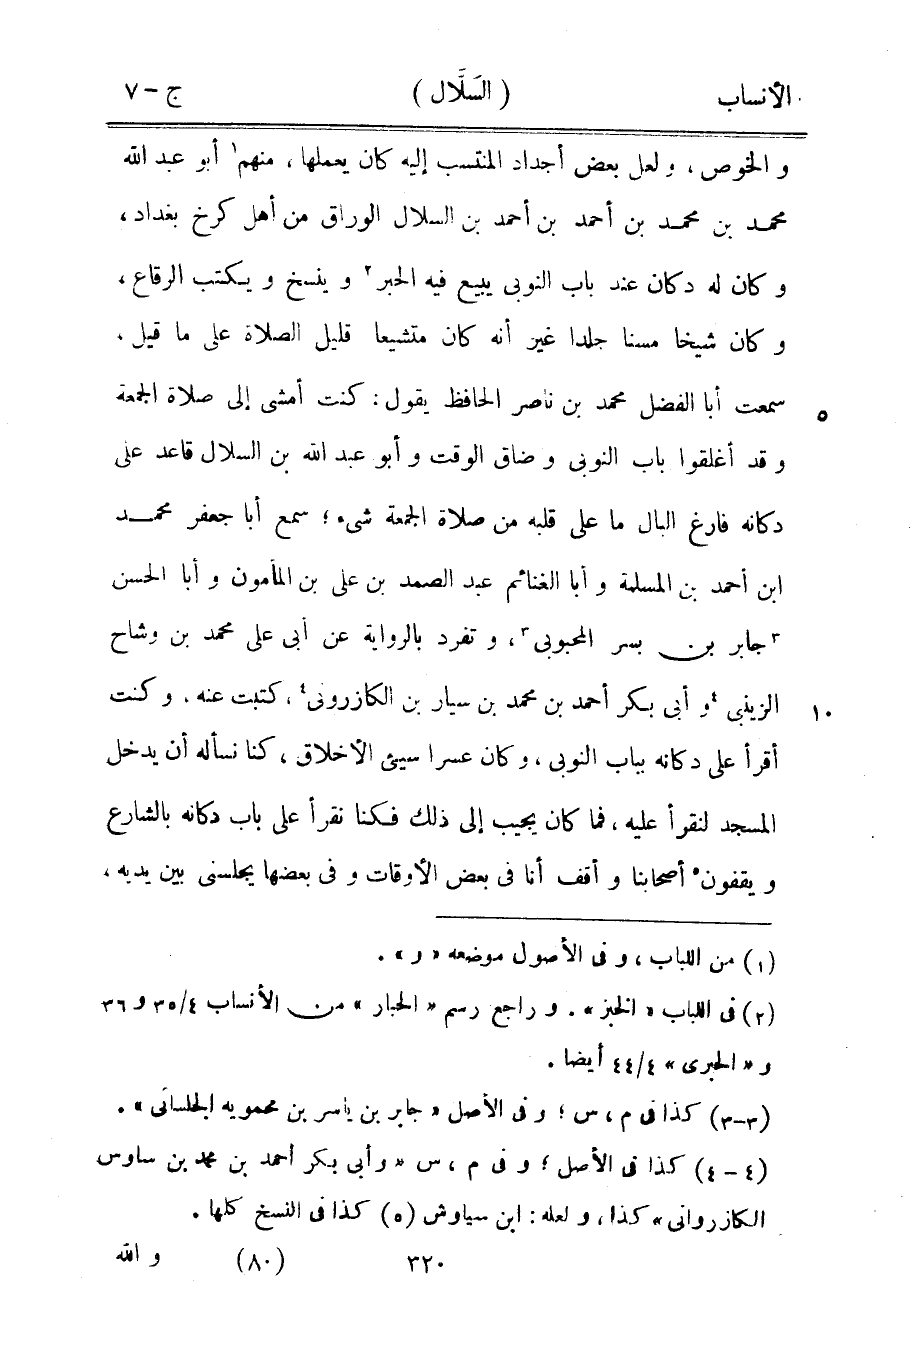 الأنساب ( السَلَّال ) ج - ٧
و الخوص ، و لعل بعض أجداد المنتسب إليه كان يعملها ، منهم١ أبو عبد الله
محمد بن محمد بن أحمد بن أحمد بن السلال الوراق من أهل كرخ بغداد ،
و كان له دكان عند باب النوبى يبيع فيه الحبر٢ و ينسخ و يكتب الرقاع ،
و كان شيخا مسنا جلدا غير أنه كان متشيعا قليل الصلاة على ما قيل .
سمعت أبا الفضل محمد بن ناصر الحافظ يقول : كنت أمشى إلى صلاة الجمعة ٥
و قد أغلقوا باب النوبى و ضاق الوقت و أبو عبد الله بن السلال قاعد على
دكانه فارغ البال ما على قلبه من صلاة الجمعة شىء ؛ سمع أبا جعفر محمد
ابن أحمد بن المسلمة و أبا الغنائم عبد الصمد بن على بن المأمون و أبا الحسن
٣جابر بن بسر المحبوبى٣ ، و تفرد بالرواية عن أبى على محمد بن وشاح
الزينبى ٤و أبى بكر أحمد بن محمد بن سيار بن الكازرونى٤ ، كتبت عنه . و كنت ١٠
أقرأ على دكانه بباب النوبى ، و كان عسرا سيئ الأخلاق ، كنا نسأله أن يدخل
المسجد لنقرأ عليه ، فما كان يجيب إلى ذلك فكنا نقرأ على باب دكانه بالشارع
و يقفون٥ أصحابنا و أقف أنا فى بعض الأوقات و فى بعضها يجلسنى بين يديه ،
(١) من اللباب ، و فى الأصول موضعه « و » .
(٢) فى اللباب « الخبز » . و راجع رسم « الحبار » من الأنساب ٣٥/٤ و ٣٦
و « الحبرى » ٤٤/٤ أيضا .
(٣-٣) كذا فى م ، س ؛ و فى الأصل « جابر بن ياسر بن محمويه الجلسانى » .
(٤ - ٤) كذا فى الأصل ؛ و فى م ، س « و أبى بكر أحمد بن محمد بن ساوس
الكازروانى » كذا ، و لعله : ابن سياوش (٥) كذا فى النسخ كلها .
٣٢٠ (٨٠) و الله